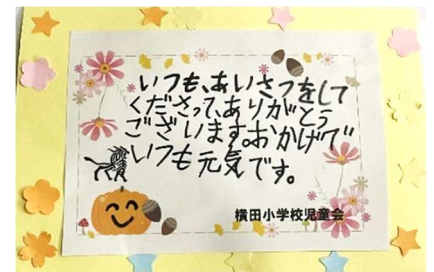 いつも、あいさつをして
くださって、ありがとう
ございます。おかげで
いつも元気です。
横田小学校児童会